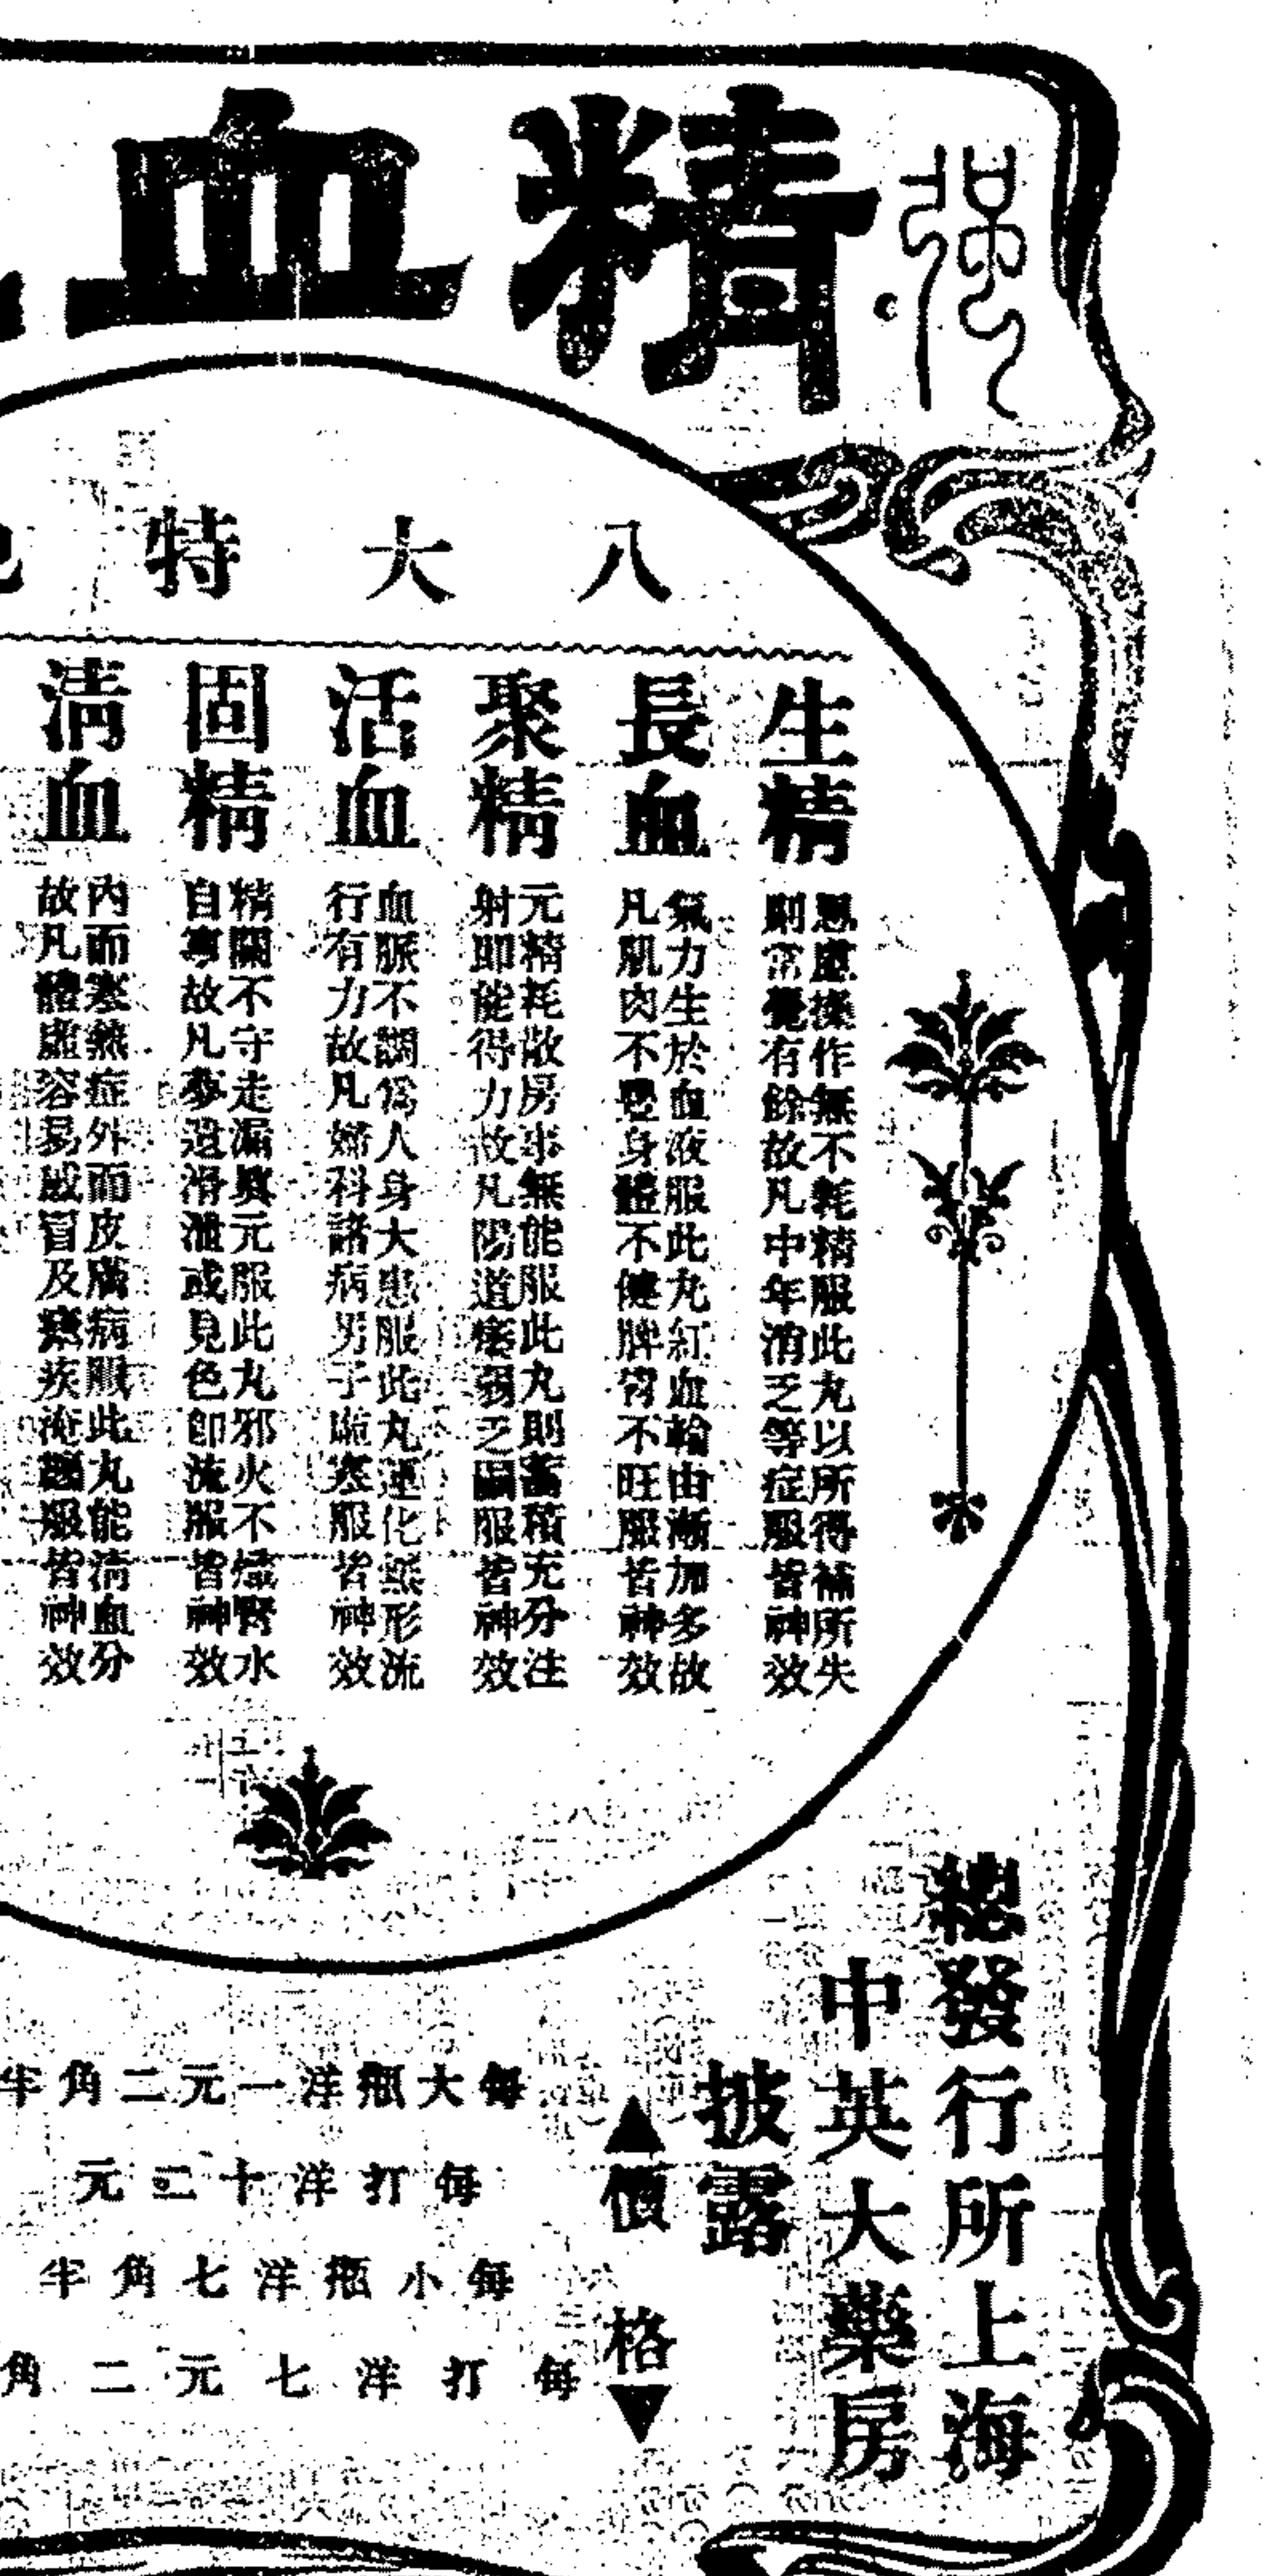 强
精血
八大特色
生精
思慮操作無不耗精服此丸以所得補所失
則常覺有餘故凡中年消乏等症服皆神效
長血
氣力生於血液服此丸紅血輪由漸加多故
凡肌肉不豐身體不健脾胃不旺服皆神效
聚精
元精耗散房事無能服此丸則蓄積充分注
射即能得力故凡陽道痿弱乏嗣服皆神效
活血
血脈不調爲人身大患服此丸運化無形流
行有力故凡婦科諸病男子虛寒服皆神效
固精
精關不守走漏眞元服此丸邪火不熾腎水
自寧故凡夢遺滑洩或見色卽流服皆神效
清血
內而寒熱症外而皮膚病服此丸能清血分
故凡體虛容易感冒及癥疾淹纏服皆神效
總發行所上海
中英大藥房
披露
▲價格▼
每大瓶洋一元二角半
每打洋十二元
每小瓶洋七角半
每打洋七元二角